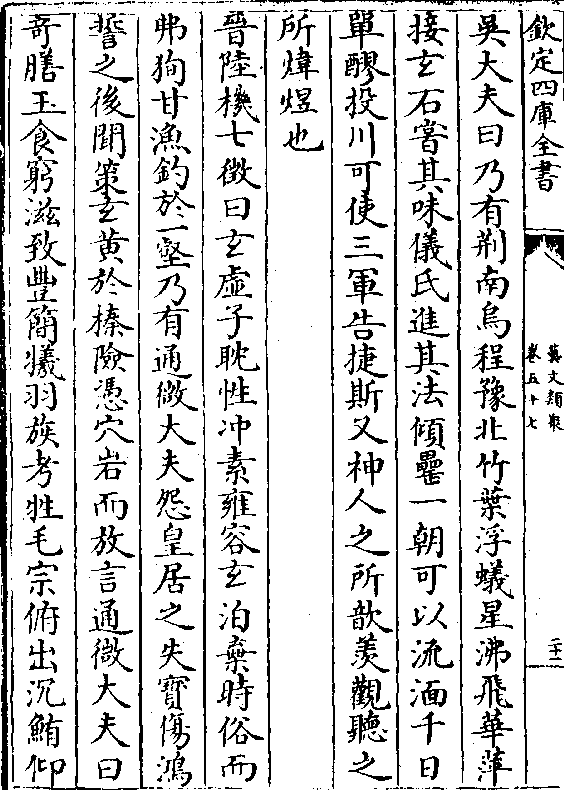 欽定四庫全書
藝文類聚
卷五十七
二十一
吳大夫曰乃有荆南烏程豫北竹葉浮蟻星沸飛華萍
接玄石嘗其味儀氏進其法傾罍一朝可以流湎千日
單醪投川可使三軍告捷斯又神人之所歆羡觀聽之
所煒煜也
晉陸機七徵曰玄虛子耽性冲素雍容玄泊棄時俗而
弗狥甘漁釣於一壑乃有通微大夫怨皇居之失寶傷鴻
誓之後聞策玄黄於榛險憑穴岩而放言通微大夫曰
奇膳玉食窮滋致豐簡犧羽族考牲毛宗俯出沉鮪仰